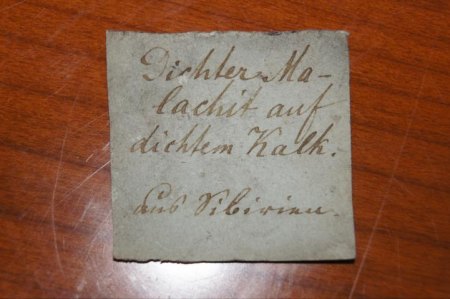 Dichter Ma-
lachit auf
dichtem Kalk.
aus Sibirien.